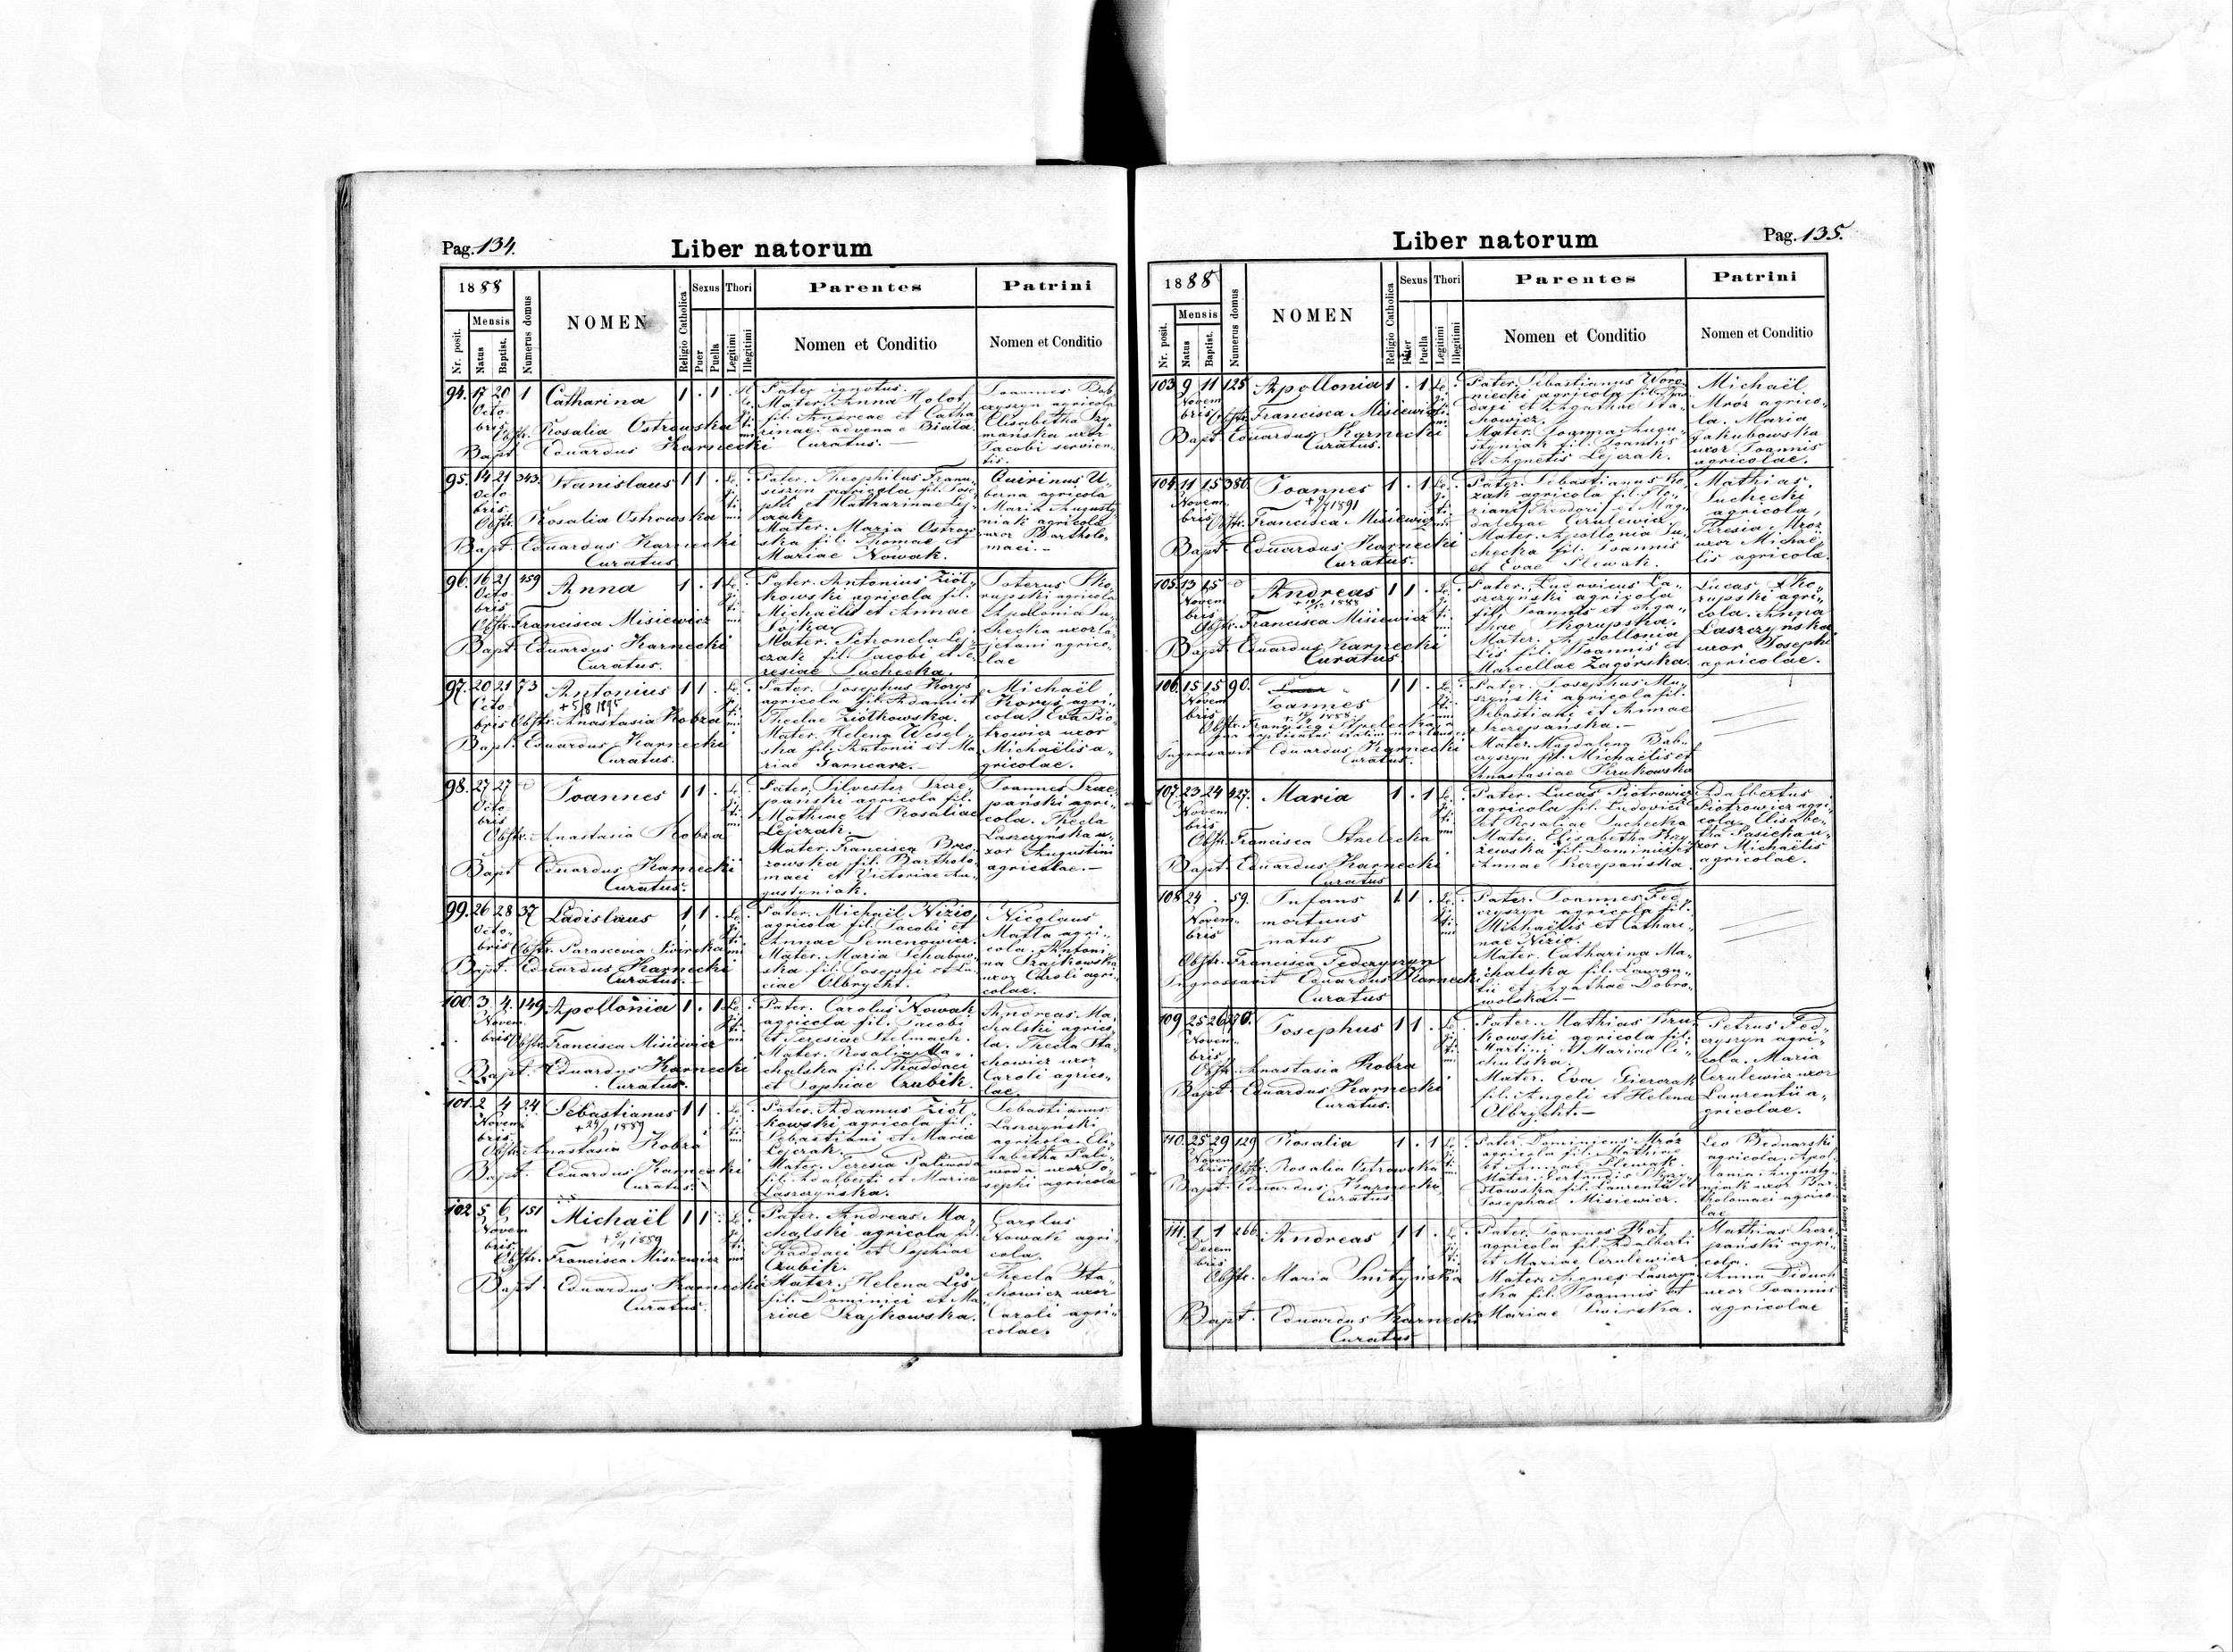 Pag. 134.
Liber natorum
1888
Nr. posit.
Mensis
Natus
Baptist.
Numerus domus
NOMEN
Religio Catholica
Sexus
Puer
Puella
Thori
Legitimi
Illegitimi
Parentes
Nomen et Conditio
Patrini
Nomen et Conditio
94. 17 20 1 Catharina 1 . 1
Octo-
bris
Obstr. Rosalia Ostrowska
Bapt. Eduardus Karnecki
Curatus.
Pater ignotus.
Mater. Anna Holot
fil. Andreae et Catha
rinae. advena e Biała.
Joannes Bab
czyszyn agricola
Elisabetha Szy-
mańska uxor
Jacobi servien-
tis.
95. 14 21 343. Stanislaus 1 1 .
Octo
bris
Obstr. Rosalia Ostrowska
Bapt. Eduardus Karnecki
Curatus
Pater. Theophilus Frana-
siszyn agricola fil. Jose
phi et Katharinae Lej-
czak
Mater. Maria Ostrow
ska fil. Thomae et
Mariae Nowak.
Quirinus U-
berna agricola
Maria Augusty
niak agricola
uxor Bartholo-
maei. -
96. 16 21 459 Anna 1 . 1
Octo-
bris
Obstr. Francisca Misiewicz
Bapt. Eduardus Karnecki
Curatus.
Pater. Antonius Ziół-
kowski agricola fil.
Michaëlis et Annae
Sojka
Mater. Petronela Lej-
czak fil. Jacobi et Te-
resiae Suchecka.
Sko-
rupski agricola
Apolonia Su-
checka uxor Ca-
jetani agrico-
lae
97. 20 21 73 Antonius 1 1 .
Octo-
bris
+ 5/8 1895
Obstr. Anastasia Kobza
Bapt. Eduardus Karnecki
Curatus.
Pater. Josephus Korys
agricola fil. Adami et
Theclae Ziółkowska.
Mater. Helena Wesel-
ska fil. Antonii et Ma
riae Garncarz. -
Michaël
Korys agri-
cola. Eva Pio-
trowicz uxor
Michaëlis a-
gricolae.
98. 27 27 Joannes 1 1 .
Octo-
bris
Obstr. Anastasia Kobza
Bapt. Eduardus Karnecki
Curatus.
Pater. Silvester Szcze-
pański agricola fil.
Mathiae et Rosaliae
Lejczak.
Mater. Francisca Brzo-
zowska fil. Bartholo-
maei et Victoriae Au-
gustyniak.
Joannes Szcze-
pański agri-
cola. Thecla
Laszczyńska u-
xor Augustini
agricolae. -
99. 26 28 37 Ladislaus 1 1 .
Octo-
bris
Obstr. Parascevia Siwirska
Bapt. Eduardus Karnecki
Curatus.
Pater. Michaël Nizio
agricola fil. Jacobi et
Annae Semenowicz.
Mater. Maria Schabow-
ska fil. Josephi et Lu-
ciae Olbrycht.
Nicolaus
Matla agri-
cola. Antoni-
na Prajkowska
uxor Caroli agri-
colae.
100. 3 4 149 Apollonia 1 . 1
Novem
bris
Obstr. Francisca Misiewicz
Bapt. Eduardus Karnecki
Curatus.
Pater. Carolus Nowak
agricola fil. Jacobi
et Teresiae Stelmach.
Mater. Rosalia Ma-
chalska fil. Thaddaei
et Sophiae Czubik.
Andreas Ma-
chalski agrico-
la. Thecla Sta-
chowicz uxor
Caroli agrico-
lae.
101. 2 4 24. Sebastianus 1 1 .
Novem
bris
+ 24/9 1889
Obstr. Anastasia Kobza
Bapt. Eduardus Karnecki
Curatus.
Pater. Adamus Ziół-
kowski agricola fil.
Sebastiani et Mariae
Lejczak.
Mater. Teresia Paliwoda
fil. Adalberti et Mariae
Laszczyńska.
Sebastianus
Laszczyński
agricola. Eli-
sabetha Pali-
woda uxor Jo-
sephi agricola
102 5 6 151 Michaël 1 1
Novem
bris
+ 5/4 1889
Obstr. Francisca Misiewicz
Bapt. Eduardus Karnecki
Curatus.
Pater. Andreas Ma-
chalski agricola fil
Thaddaei et Sophiae
Czubik.
Mater. Helena Lis
fil. Dominici et Ma-
riae Prajkowska.
Carolus
Nowak agri-
cola.
Thecla Sta-
chowicz uxor
Caroli agri-
colae.
Pag. 135.
Liber natorum
1888
Nr. posit.
Mensis
Natus
Baptist.
Numerus domus
NOMEN
Religio Catholica
Sexus
Puer
Puella
Thori
Legitimi
Illegitimi
Parentes
Nomen et Conditio
Patrini
Nomen et Conditio
103 9 11 125 Apollonia 1 . 1
Novem
bris
Obstr. Francisca Misiewicz
Bapt. Eduardus Karnecki
Curatus.
Pater. Sebastianus Woro-
niecki agricola fil.
et Agathae Sta-
chowicz.
Mater. Joanna Augu-
styniak fil. Joannis
et Agnetis Lejczak.
Michaël
Mróz agrico-
la. Maria
Jakubowska
uxor Joannis
agricolae.
104. 11 15 386. Joannes 1 . 1
Novem
bris
Obstr. Francisca Misiewicz
Bapt. Eduardus Karnecki
Curatus.
Pater. Sebastianus
agricola fil. Flo-
riani Theodori et Mag-
dalenae Cerulewicz.
Mater. Apollonia Su-
checka fil. Joannis
et Evae Plewak.
Mathias
Suchecki
agricola,
Teresia Mróz
uxor Michaë-
lis agricolae
105. 13 15 Andreas 1 1 .
Novem
bris
Obstr. Francisca Misiewicz
Bapt. Eduardus Karnecki
Curatus
Pater. Ludovicus La-
szczyński agricola
fil. Joannis et Aga-
thae Skorupska.
Mater. Apollonia
Lis fil. Joannis et
Marcellae Zagórska.
Lucas Sko-
rupski agri-
cola. Anna
Laszczyńska
uxor Josephi
agricolae.
106. 15 15 90. Joannes 1 1 .
Novem
bris
Ingrossavit Eduardus Karnecki
Curatus.
Pater. Josephus Mu-
szyński agricola fil.
Sebastiani et Annae
Szczepańska. -
Mater. Magdalena Bab-
czyszyn fil. Michaëlis et
Anastasiae Krukowska
107. 23 24 427. Maria 1 . 1
Novem
bris
Obstr. Francisca Strelecka
Bapt. Eduardus Karnecki
Curatus
Pater. Lucas Piotrowicz
agricola fil. Ludovici
et Rosaliae Suchecka
Mater. Elisabetha Krzy-
żewska fil. Dominici et
Annae Szczepańska.
Adalbertus
Piotrowicz agri-
cola. Elisabe-
tha Pasieka u-
xor Michaëlis
agricolae.
108 24 . 59. Infans 1 1 .
Novem-
bris
mortuus
natus
Obstr. Francisca Fedczyszyn
Ingrossavit Eduardus Karnecki
Curatus
Pater. Joannes Fed-
czyszyn agricola fil.
Michaëlis et Cathari-
nae Nizio.
Mater. Catharina Ma-
chalska fil. Lauren-
tii et Agathae Dobro-
wolska. -
109 25 26 Josephus 1 1 .
Novem-
bris
Obstr. Anastasia Kobza
Bapt. Eduardus Karnecki
Curatus.
Pater. Mathias Kru-
kowski agricola fil.
Martini et Mariae Ci-
chulska.
Mater. Eva Gierczak
fil. Angeli et Helenae
Olbrycht. -
Petrus Fed-
czyszyn agri-
cola. Maria
Cerulewicz uxor
Laurentii a-
gricolae.
110. 25 29 129 Rosalia 1 . 1
Novem
bris
Obstr. Rosalia Ostrowska
Bapt. Eduardus Karnecki
Curatus.
Pater. Dominicus Mróz
agricola fil. Mathiae
et Annae Plewak.
Mater.
fil. Laurentii et
Josephae Misiewicz.
Leo Bednarski
agricola. Apol-
lonia Augusty-
niak uxor Bar-
tholomaei agrico-
lae
111. 1 1 266. Andreas 1 1 .
Decem
bris
Obstr. Maria Snityńska
Bapt. Eduardus Karnecki
Curatus
Pater. Joannes Kot
agricola fil. Adalberti
et Mariae Cerulewicz.
Mater. Agnes Laszczyń-
ska fil. Joannis et
Mariae Siwirska.
Mathias Szcze-
pański agri-
cola.
Anna Diduch
uxor Joannis
agricolae